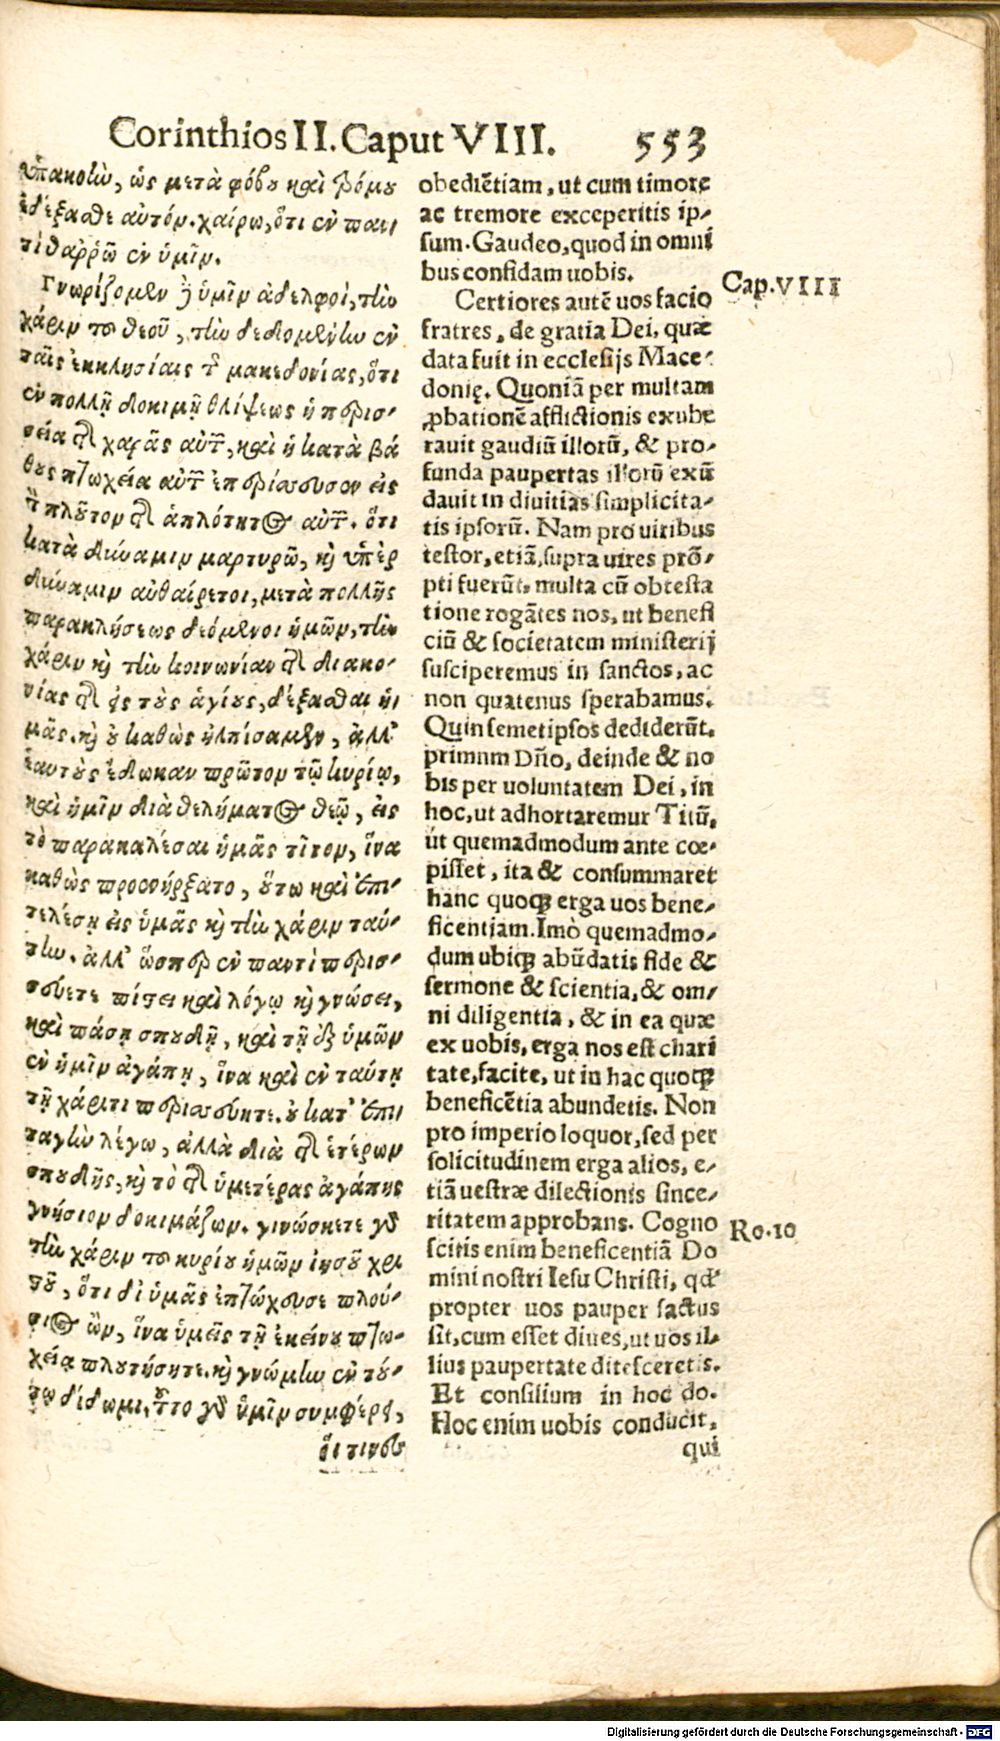 Corinthios II. Caput VIII. 553
ὑπακοὴν, ὡς μετὰ φόβου καὶ τρόμου
ἐδέξασθε αὐτόν. χαίρω, ὅτι ἐν παν
τὶ θαῤῥῶ ἐν ὑμῖν.
Γνωρίζομεν δὲ ὑμῖν ἀδελφοὶ, τὴν
χάριν τοῦ θεοῦ, τὴν δεδομένην ἐν
ταῖς ἐκκλησίαις τῆς μακεδονίας, ὅτι
ἐν πολλῇ δοκιμῇ θλίψεως ἡ περισ-
σεία τῆς χαρᾶς αὐτῶν, καὶ ἡ κατὰ βά
θους πτωχεία αὐτῶν ἐπερίσσευσεν εἰς
τὸν πλοῦτον τῆς ἁπλότητος αὐτῶν. ὅτι
κατὰ δύναμιν μαρτυρῶ, καὶ ὑπὲρ
δύναμιν αὐθαίρετοι, μετὰ πολλῆς
παρακλήσεως δεόμενοι ἡμῶν, τὴν
χάριν καὶ τὴν κοινωνίαν τῆς διακο-
νίας τῆς εἰς τοὺς ἁγίους, δέξασθαι ἡ
μᾶς. καὶ οὐ καθὼς ἠλπίσαμεν, ἀλλ'
ἑαυτοὺς ἔδωκαν πρῶτον τῷ κυρίῳ,
καὶ ἡμῖν διὰ θελήματος θεοῦ, εἰς
τὸ παρακαλέσαι ἡμᾶς τίτον, ἵνα
καθὼς προενήρξατο, οὕτω καὶ ἐπι-
τελέσῃ εἰς ὑμᾶς καὶ τὴν χάριν ταύ-
την. ἀλλ' ὥσπερ ἐν παντὶ περισ-
σεύετε πίστει καὶ λόγῳ καὶ γνώσει,
καὶ πάσῃ σπουδῇ, καὶ τῇ ἐξ ὑμῶν
ἐν ἡμῖν ἀγάπῃ, ἵνα καὶ ἐν ταύτῃ
τῇ χάριτι περισσεύητε. οὐ κατ' ἐπι
ταγὴν λέγω, ἀλλὰ διὰ τῆς ἑτέρων
σπουδῆς, καὶ τὸ τῆς ὑμετέρας ἀγάπης
γνήσιον δοκιμάζων. γινώσκετε γὰρ
τὴν χάριν τοῦ κυρίου ἡμῶν ἰησοῦ χρι
στοῦ, ὅτι δι' ὑμᾶς ἐπτώχευσε πλού-
σιος ὢν, ἵνα ὑμεῖς τῇ ἐκείνου πτω-
χείᾳ πλουτήσητε. καὶ γνώμην ἐν τού-
τῳ δίδωμι, τοῦτο γὰρ ὑμῖν συμφέρει,
οἵ τινες
obediẽtiam, ut cum timore
ac tremore exceperitis ip-
sum. Gaudeo, quod in omni
bus confidam uobis.
Cap. VIII
Certiores autẽ uos facio
fratres, de gratia Dei, quæ
data fuit in ecclesijs Mace-
donię. Quoniã per multam
ꝓbationẽ afflictionis exube
rauit gaudiũ illorũ, & pro-
funda paupertas illorũ exũ
dauit in diuitias simplicita-
tis ipsorũ. Nam pro uiribus
testor, etiã supra uires prõ-
pti fuerũt, multa cũ obtesta
tione rogãtes nos, ut benefi
ciũ & societatem ministerij
susciperemus in sanctos, ac
non quatenus sperabamus.
Quin semetipsos dediderũt,
primnm Dño, deinde & no
bis per uoluntatem Dei, in
hoc, ut adhortaremur Titũ,
ut quemadmodum ante cœ-
pisset, ita & consummaret
hanc quoqꝫ erga uos bene-
ficentiam. Imò quemadmo-
dum ubiqꝫ abũdatis fide &
sermone & scientia, & om-
ni diligentia, & in ea quæ
ex uobis, erga nos est chari
tate, facite, ut in hac quoqꝫ
beneficẽtia abundetis. Non
pro imperio loquor, sed per
solicitudinem erga alios, e-
tiã uestræ dilectionis since-
ritatem approbans. Cogno
Ro. 10
scitis enim beneficentiã Do
mini nostri Iesu Christi, qď
propter uos pauper factus
sit, cum esset diues, ut uos il-
lius paupertate ditesceretis.
Et consilium in hoc do.
Hoc enim uobis conducit,
qui
Digitalisierung gefördert durch die Deutsche Forschungsgemeinschaft - DFG